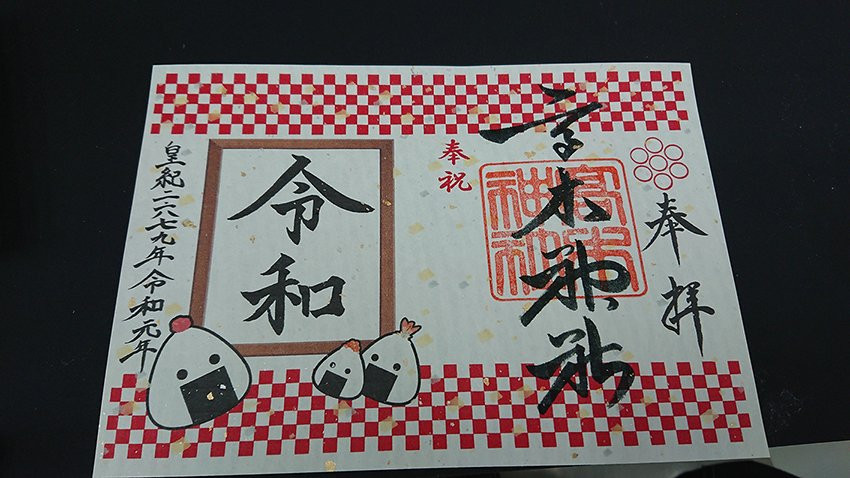 奉拝
高木神社
高木神社
奉祝
令和
皇紀二六七九年令和元年